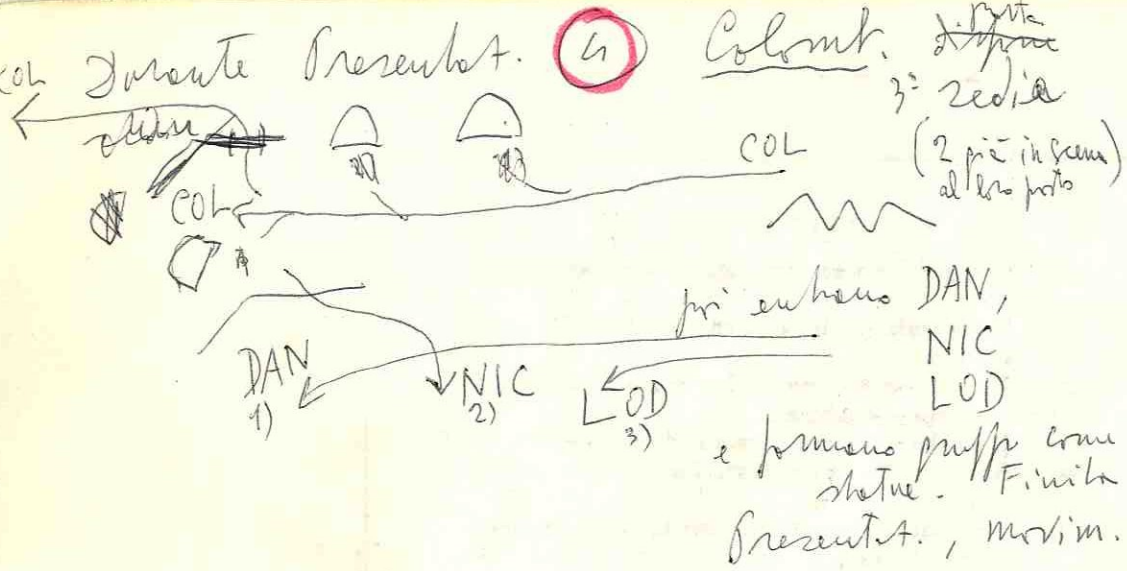 COL Durante Presentat. 4 Colomb. porta
3ª sedia
COL (2 già in scena)
al loro posto
COL
poi entrano DAN,
DAN NIC LOD NIC
1) 2) 3) LOD
e formano gruppo come
statue. Finita
Presentat., movim.